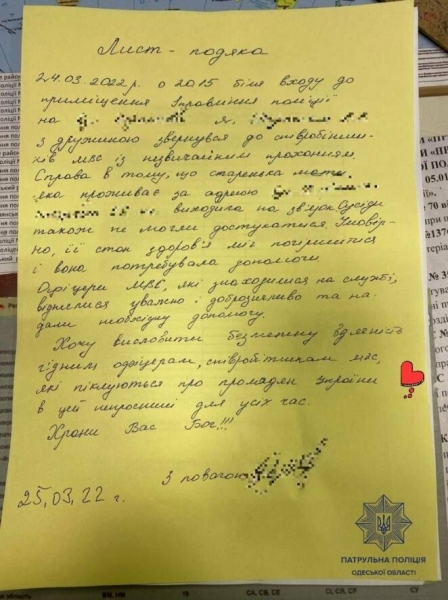 Лист - подяка
24.03.2022р. о 2015 біля входу до
приміщення Управління поліції
на я,
з дружиною звернувся до співробітни-
ків МВС із незвичайним проханням.
Справа в тому, що старенька мати,
яка проживає за адресою
виходила на зв'язок. Сусіди
також не могли достукатися. Ймовір-
но, її стан здоров'я міг погіршитися
і вона потребувала допомоги.
Офіцери МВС, які знаходилися на службі,
віднеслися уважно і доброзичливо та на-
дали необхідну допомогу.
Хочу висловити безмежну вдячність
гідним офіцерам, співробітникам МВС,
які піклуються про громадян України
в цей непростий для усіх час.
Храни Вас Бог!!!
З повагою
25,03,22 г.
ПАТРУЛЬНА ПОЛІЦІЯ
ОДЕСЬКОЇ ОБЛАСТІ